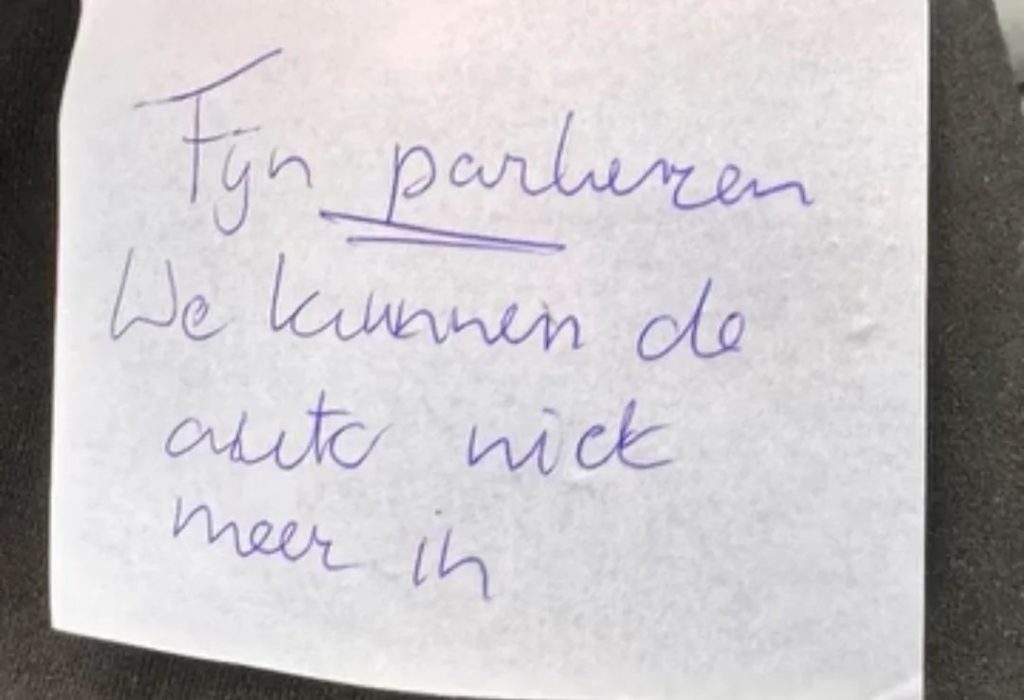 Fijn parkeren
We kunnen de
auto niet
meer in